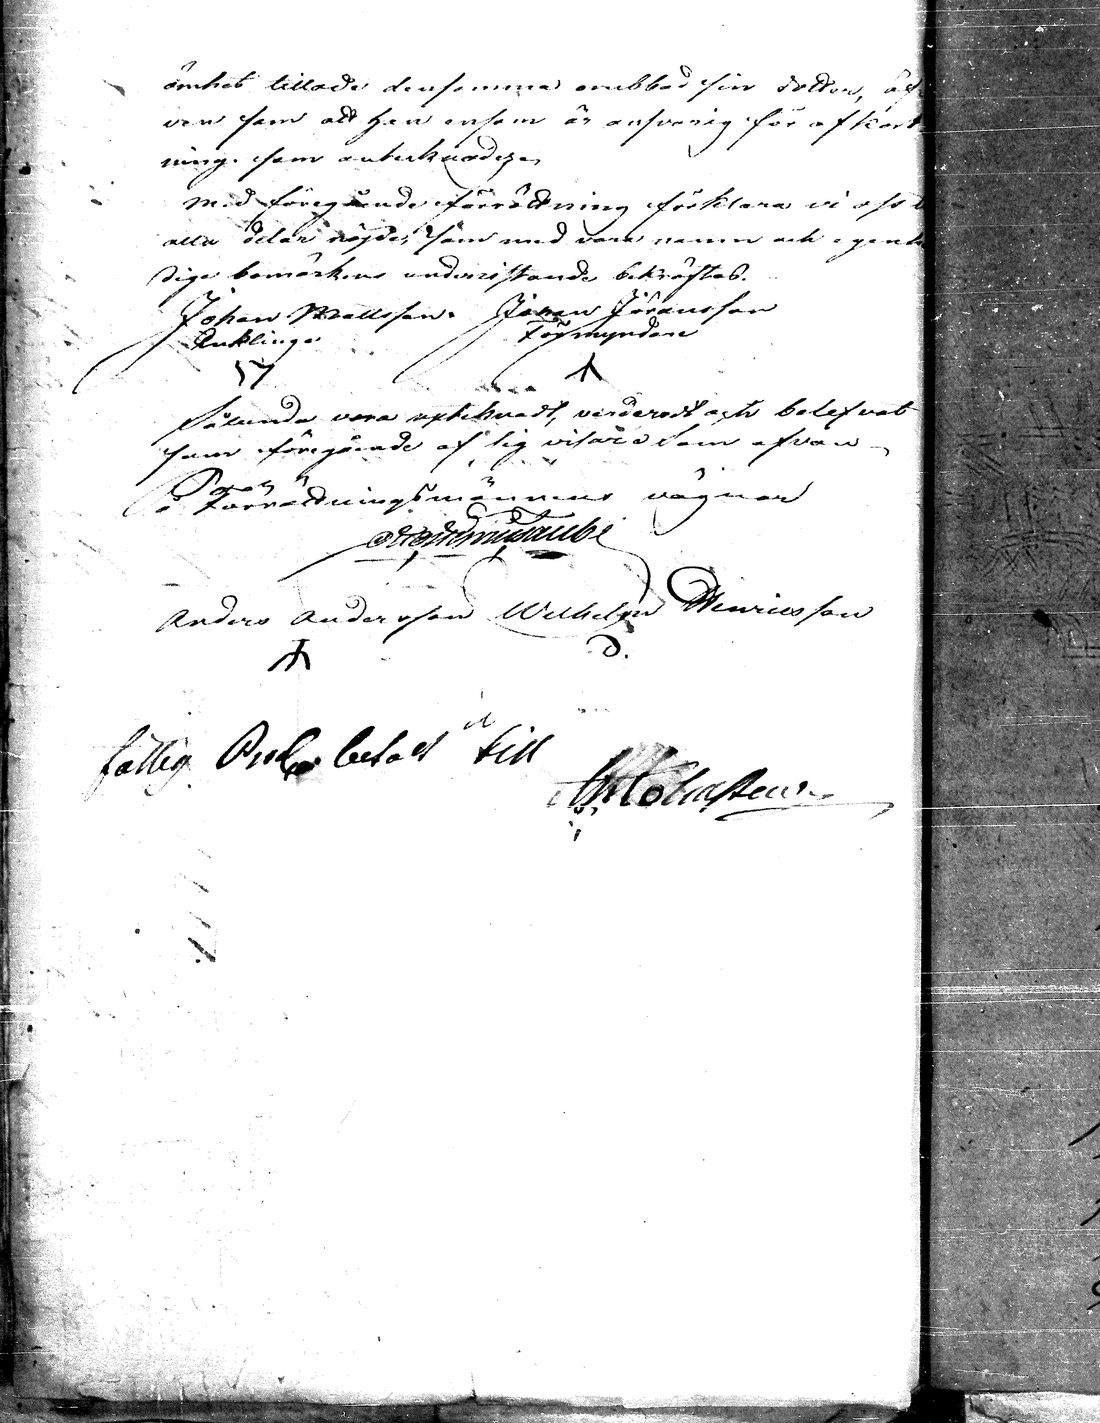 ömhet tillade densamma onebbad sin dotter, äf
ven som att han ensam är ansvarig för afkort
ning som anteknades
Med föregående förrättning förklara vi oss i
alla delar nöjde, som med våra namn och egenhän
dige bomärken underristande bekräftas.
Johan Mattsson. Johan Jöransson
Enklinge Förmyndare
Sålunda vara uptecknadt, värderadt och belefvat
som föregående af sig visar som ofvan
På Förrättningsmännens vägnar
Anders Andersson Wilhelm Henricsson
D.
fattig Proc. betalt till